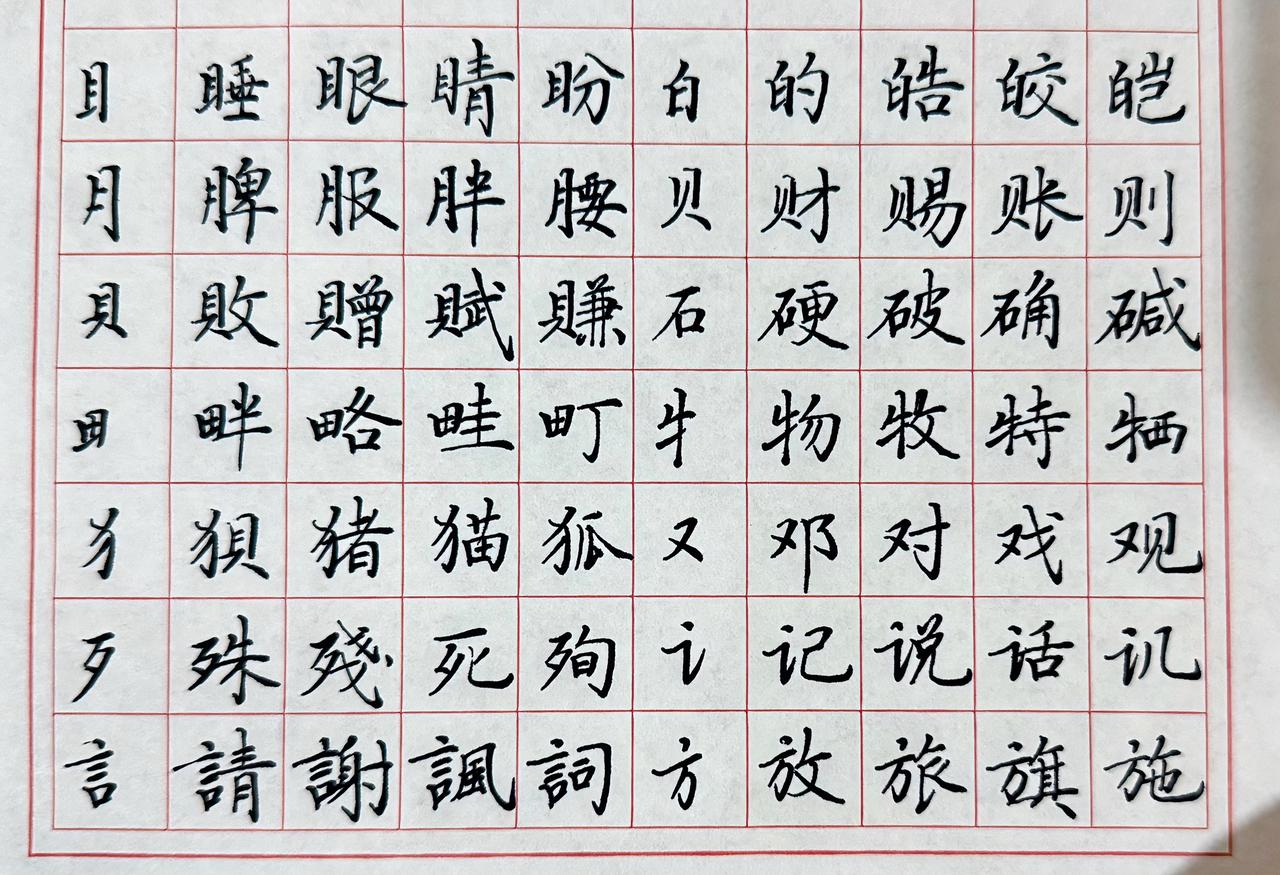 目睡眼睛盼白的皓皎皑
月脾服胖腰贝财赐账则
貝敗贈賦賺石硬破确碱
田畔略畦町牜物牧特牺
犭狽猪猫狐又邓对戏观
歹殊殘死殉讠记说话讥
言請謝諷詞方放旅旗施